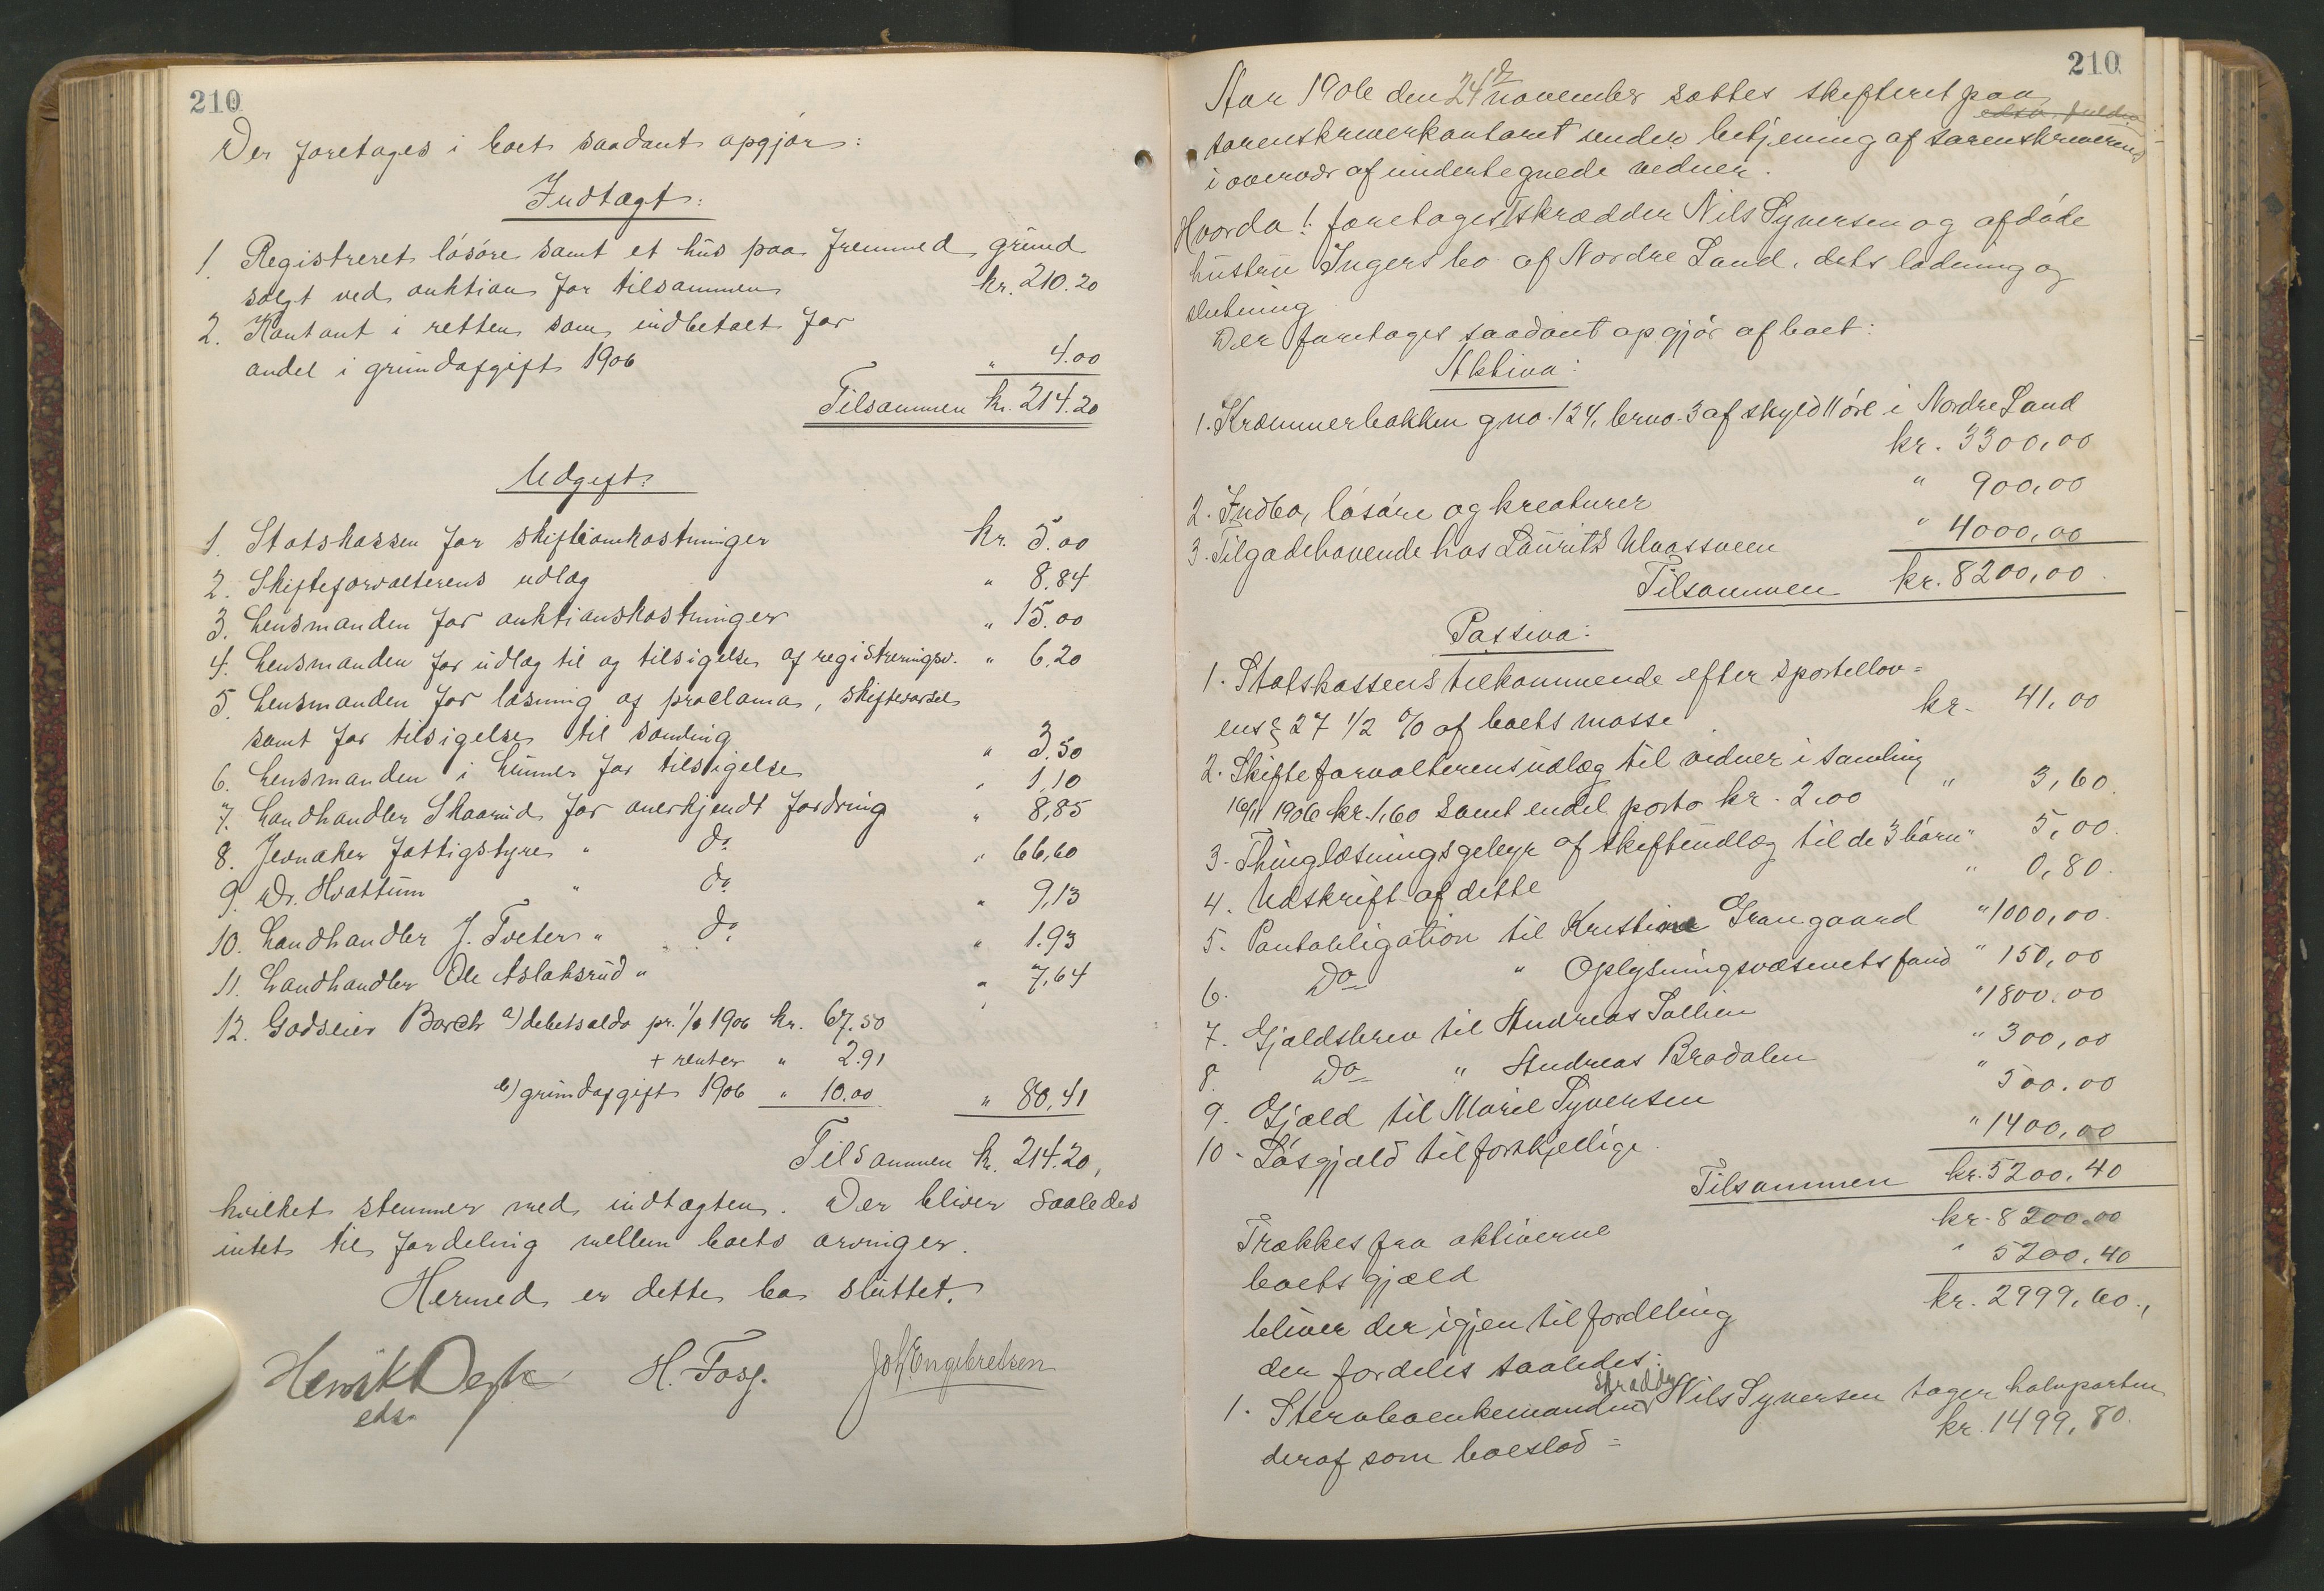 210
Der foretages i boet saadant opgjør:
Indtægt:
1. Registreret løsøre samt et hus paa fremmed grund
solgt ved auktion for tilsammen kr. 210.20
2. Kontant i retten som indbetalt for
andel i grundafgift 1906 " 4.00
Tilsammen kr. 214.20
Udgift:
1. Statskassen for skifteomkostninger kr. 5.00
2. Skifteforvalterens udlæg " 8.84
3. Lensmanden for auktionskostninger " 15.00
4. Lensmanden for udlæg til og tilsigelse af registreringsv. " 6,20
5. Lensmanden for læsning af proclama, skiftevarsel
samt for tilsigelse til samling " 3.50
6. Lensmanden i Lunner for tilsigelse " 1,10
7. Landhandler Skaarud for anerkjendt fordring " 8,85
8. Jevnaker fattigstyre " do " 66,60
9. Dr. Hvattum " do " 9,13
10. Landhandler J. Tveter " " do " 1.93
11. Landhandler Ole Aslaksrud " " 7,64
12. Godseier Borch a) debetsaldo pr. 1/1 1906 kr. 67.50
+ renter " 2.91
b) grundafgift 1906 " 10.00 " 80,41
Tilsammen kr. 214.20,
hvilket stemmer med indtægten. Der bliver saaledes
intet til fordeling mellem boets arvinger.
Hermed er dette bo sluttet.
Henrik
eds.
H. Fosg.
Joh Engebretsen
210
Aar 1906 den 24d november sattes skifteret paa
sorenskriverkontoret under betjening af sorenskriverens
edsv. fuldm
i overvær af undertegnede vidner.
Hvorda! foretages skrædder Nils Syversen og afdøde
hustru Ingers bo af Nordre Land, dets lodning og
slutning
Der foretages saadant opgjør af boet:
Aktiva:
1. Kræmmerbakken gno. 124, brno. 3 af skyld 11 øre i Nordre Land
kr. 3300,00
2. Indbo, løsøre og kreaturer " 900,00
3. Tilgodehavende hos Laurits Ulvassveen " 4000,00
Tilsammen kr. 8200,00.
Passiva:
1. Statskassens tilkommende efter sportellov=
ens § 27 1/2 % af boets masse kr. 41,00
2. Skifteforvalterens udlæg til vidner i samling
16/11 1906 kr. 1,60 samt endel porto kr. 2.00 " 3,60.
3. Thinglæsningsgebyr af skifteudlæg til de 3 børn " 5,00.
4. Udskrift af dette " 0,80.
5. Pantobligation til Kristine Grangaard " 1000,00.
6. Do " Oplysningsvæsenets fond " 150,00
7. Gjældsbrev til Andreas Sollien " 1800.00
8. Do " Andreas Bradalen " 300,00
9. Gjæld til Marie Syversen " 500.00
10. Løsgjæld til forskjellige. " 1400,00
Tilsammen kr. 5200,40
Trækkes fra aktiverne kr. 8200.00
boets gjæld " 5200.40
bliver der igjen til fordeling kr. 2999,60.,
der fordeles saaledes:
1. Stervboenkemanden skrædder Nils Syversen tager halvparten
deraf som boeslod = kr. 1499,80.